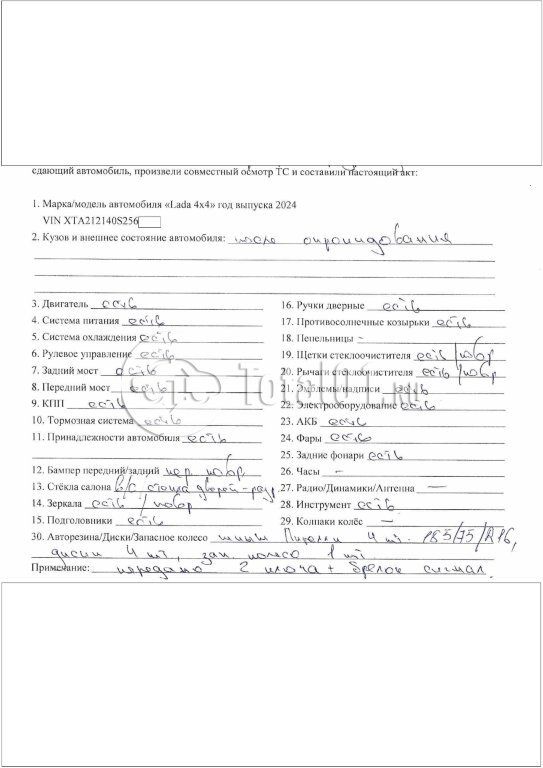 сдающий автомобиль, произвели совместный осмотр ТС и составили настоящий акт:
1. Марка/модель автомобиля «Lada 4x4» год выпуска 2024
VIN XTA212140S256
2. Кузов и внешнее состояние автомобиля: после опрокидования
3. Двигатель есть
4. Система питания есть
5. Система охлаждения есть
6. Рулевое управление есть
7. Задний мост есть
8. Передний мост есть
9. КПП есть
10. Тормозная система есть
11. Принадлежности автомобиля есть
12. Бампер передний/задний пер. повр
13. Стёкла салона в/с стекла дверей - разр
14. Зеркала есть / повр
15. Подголовники есть
16. Ручки дверные есть
17. Противосолнечные козырьки есть
18. Пепельницы –
19. Щетки стеклоочистителя есть / повр
20. Рычаги стеклоочистителя есть / повр
21. Эмблемы/надписи есть
22. Электрооборудование есть
23. АКБ есть
24. Фары есть
25. Задние фонари есть
26. Часы –
27. Радио/Динамики/Антенна –
28. Инструмент есть
29. Колпаки колёс –
30. Авторезина/Диски/Запасное колесо шины Пирелли 4 шт. 185/75/R16,
диски 4 шт, зап. колесо 1 шт
Примечание: передано 2 ключа + брелок сигнал.
Totalof.ru